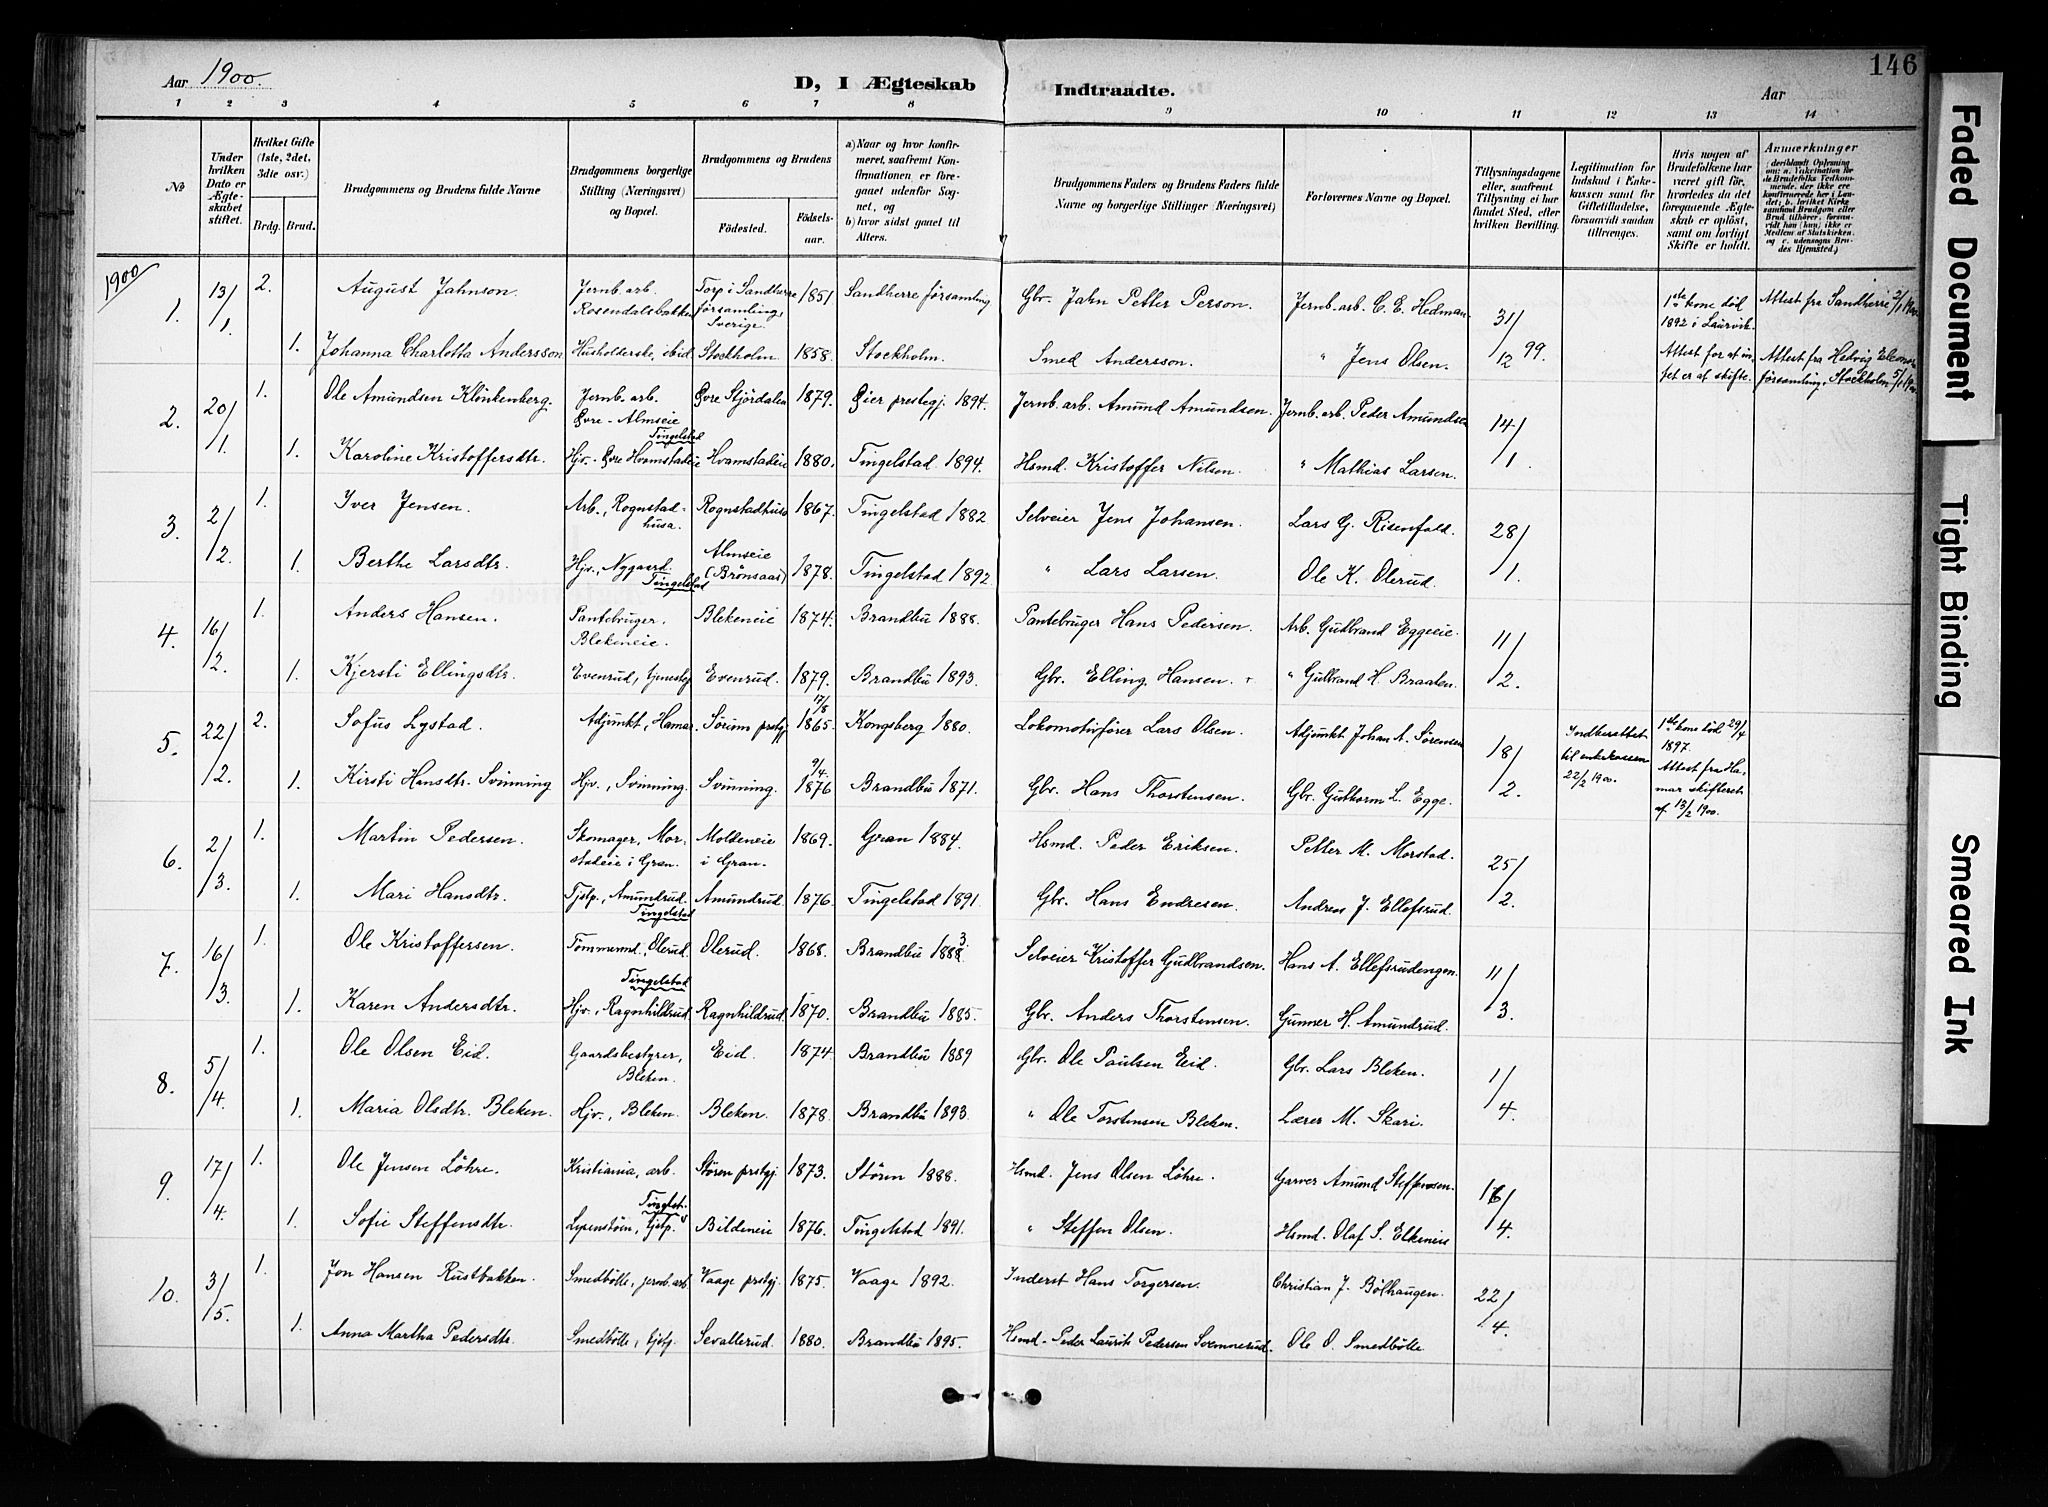 146
Aar 1900.
D, I Ægteskab Indtraadte.
Aar
1 2 3 4 5 6 7 8 9 10 11 12 13 14
No
Under hvilken Dato er Ægteskabet stiftet.
Hvilket Gifte (1ste, 2det, 3die osv.)
Brdg. Brud.
Brudgommens og Brudens fulde Navne
Brudgommens borgerlige Stilling (Næringsvei) og Bopæl.
Brudgommens og Brudens
Fødested.
Fødselsaar.
a) Naar og hvor konfirmeret, saafremt Konfirmationen er foregaaet udenfor Sognet, og
b) hvor sidst gaaet til Alters.
Brudgommens Faders og Brudens Faders fulde Navne og borgerlige Stillinger (Næringsvei)
Forlovernes Navne og Bopæl.
Tillysningsdagene eller, saafremt Tillysning ei har fundet Sted, efter hvilken Bevilling.
Legitimation for Indskud i Enkekassen samt for Giftetilladelse, forsaavidt saadan tiltrænges.
Hvis nogen af Brudefolkene har været gift før, hvorledes da det foregaaende Ægteskab er opløst, samt om lovligt Skifte er holdt.
Anmærkninger
(deriblandt Oplysning om: a. Vaksination for de Brudefolks Vedkommende, der ikke ere konfirmerede her i Landet; b. hvilket Kirkesamfund Brudgom eller Brud tilhører, forsaavidt han (hun) ikke er Medlem af Statskirken, og c. udensogns Brudes Hjemsted.)
1900
1. 13/1. 2. August Jahnson. Jernb. arb. Rosendalsbakken Torp i Sandherre församling, Sverige. 1851 Sandherre församling Gbr. Jahn Petter Person. Jernb. arb. C. E. Hedman 31/12 99. 1ste kone död 1892 i Laurvik. Attest fra Sandherre
1. Johanna Charlotta Andersson Husholderske, ibid. Stockholm 1858. Stockholm. Smed Andersson. " Jens Olsen. Attest for at intet er at skifte. Attest fra Hedvig Eleonora församling, Stockholm
2. 20/1. 1. Ole Amundsen Klinkenberg. Jernb. arb. Øvre-Almseie Øvre Stjördalen 1879. Øier prestegj. 1894. Jernb. arb. Amund Amundsen. Jernb. arb. Peder Amundsen 14/1
1. Karoline Kristoffersdtr. Hjv. Øvre Hvamstadeie Tingelstad Hvamstadeie 1880. Tingelstad 1894. Hsmd. Kristoffer Nilsen. " Mathias Larsen.
3. 2/2. 1. Iver Jensen. Arb., Rognstadhusa. Rognstadhusa 1867. Tingelstad 1882 Selveier Jens Johansen. Lars G. Risenfald. 28/1.
1. Berthe Larsdtr. Hjv., Nygaard. Tingelstad Almseie (Brønsaas) 1878. Tingelstad 1892 " Lars Larsen. Ole K. Olerud.
4. 16/2. 1. Anders Hansen. Pantebruger. Blekeneie. Blekeneie 1874. Brandbu 1888. Pantebruger Hans Pedersen. Arb. Gudbrand Eggeeie. 11/2.
1. Kjersti Ellingsdtr. Evenrud, tjenestg Evenrud. 1879. Brandbu 1893. Gbr. Elling Hansen. " Gulbrand H. Braaten.
5. 22/2. 2. Sofus Lystad. Adjunkt, Hamar. Sørum prestgj 17/8 1865 Kongsberg 1880. Lokomotivfører Lars Olsen. Adjunkt Johan A. Sørensen 18/2. Indberettet til enkekassen 22/2 1900. 1ste kone död 29/4 1897. Attest fra Hamar skifteret af 13/2 1900.
1. Kirsti Hansdtr. Svinning Hjv., Svinning. Svinning. 9/4. 1876 Brandbu 1871. Gbr. Hans Thorstensen. Gbr. Guthorm L. Egge.
6. 2/3. 1. Martin Pedersen. Skomager, Morstadeie i Gran. Moldeneie i Gran. 1869. Gran 1884. Hsmd. Peder Eriksen. Petter M. Morstad. 25/2.
1. Mari Hansdtr. Tjstp., Amundrud. Tingelstad Amundrud. 1876. Tingelstad 1891. Gbr. Hans Endresen. Andreas J. Ellefsrud.
7. 16/3. 1. Ole Kristoffersen. Tømmermd, Olerud. Olerud. 1868. Brandbu 1883. Selveier Kristoffer Gudbrandsen. Hans A. Ellefsrudengen. 11/3.
1. Karen Andersdtr. Tingelstad Hjv., Ragnhildrud Ragnhildrud. 1870. Brandbu 1885. Gbr. Anders Thorstensen. Gunner H. Amundrud.
8. 5/4. 1. Ole Olsen Eid. Gaardsbestyrer, Bleken. Eid. 1874. Brandbu 1889 Gbr. Ole Paulsen Eid. Gbr. Lars Bleken. 1/4.
1. Maria Olsdtr. Bleken. Hjv., Bleken. Bleken. 1878. Brandbu 1893. " Ole Torstensen Bleken. Lærer M. Skari.
9. 17/4. 1. Ole Jensen Löhre. Kristiania, arb. Stören prstgj. 1873. Stören 1888. Hsmd. Jens Olsen Löhre. Garver Amund Steffensen. 16/4.
1. Sofie Steffensdtr. Tjstp. Bildeneie 1876. Tingelstad 1891. " Steffen Olsen. Hsmd. Olaf S. Elkeneie
10. 3/5. 1. Jon Hansen Rustbakken. Smedbötte, jernb. arb. Vaage prstgj. 1875. Vaage 1892. Inderst Hans Torgersen. Christian J. Bølhaugen. 22/4.
1. Anna Martha Pedersdtr. Smedbötte, tjstp. Sevallerud. 1880. Brandbu 1895. Hsmd. Peder Laurits Pedersen Ole O. Smedbötte
Faded Document
Tight Binding
Smeared Ink